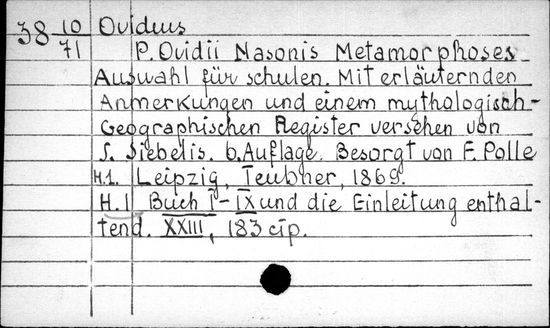 38 10/71 Ovidius
P. Ovidii Nasonis Metamorphoses
Auswahl für schulen. Mit erläuternden
Anmerkungen und einem mythologisch-
Geographischen Register versehen von
J. Siebelis. 6. Auflage. Besorgt von F. Polle
H.1. Leipzig, Teubner, 1869.
H.I Buch I-IX und die Einleitung enthal-
tend. XXIII, 183 стр.